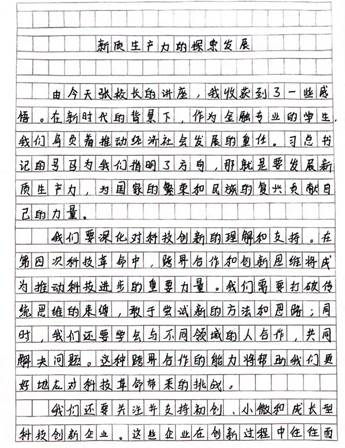 新质生产力的探索发展
由今天张校长的讲座，我收获到了一些感
悟。在新时代的背景下，作为金融专业的学生，
我们肩负着推动经济社会发展的重任。习总书
记的号召为我们指明了方向，那就是要发展新
质生产力，为国家的繁荣和民族的复兴贡献自
己的力量。
我们要深化对科技创新的理解和支持。在
第四次科技革命中，跨界合作和创新思维将成
为推动科技进步的重要力量。我们需要打破传
统思维的束缚，敢于尝试新的方法和思路；同
时，我们还要学会与不同领域的人合作，共同
解决问题。这种跨界合作的能力将帮助我们更
好地应对科技革命带来的挑战。
我们还要关注并支持初创、小微和成长型
科技创新企业。这些企业在创新过程中往往面